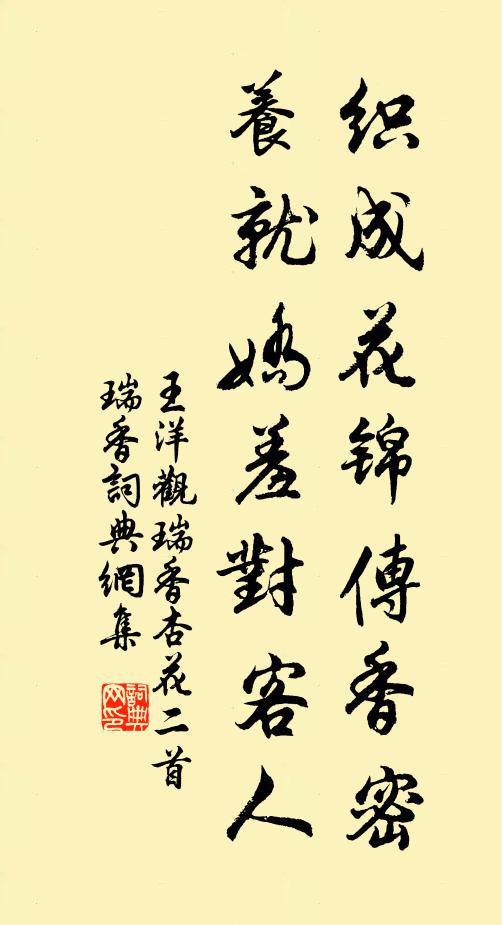 织成花锦傳香密
養就嬌羞對客人
王洋觀瑞香杏花二首
瑞香詞典網集
詞典网印